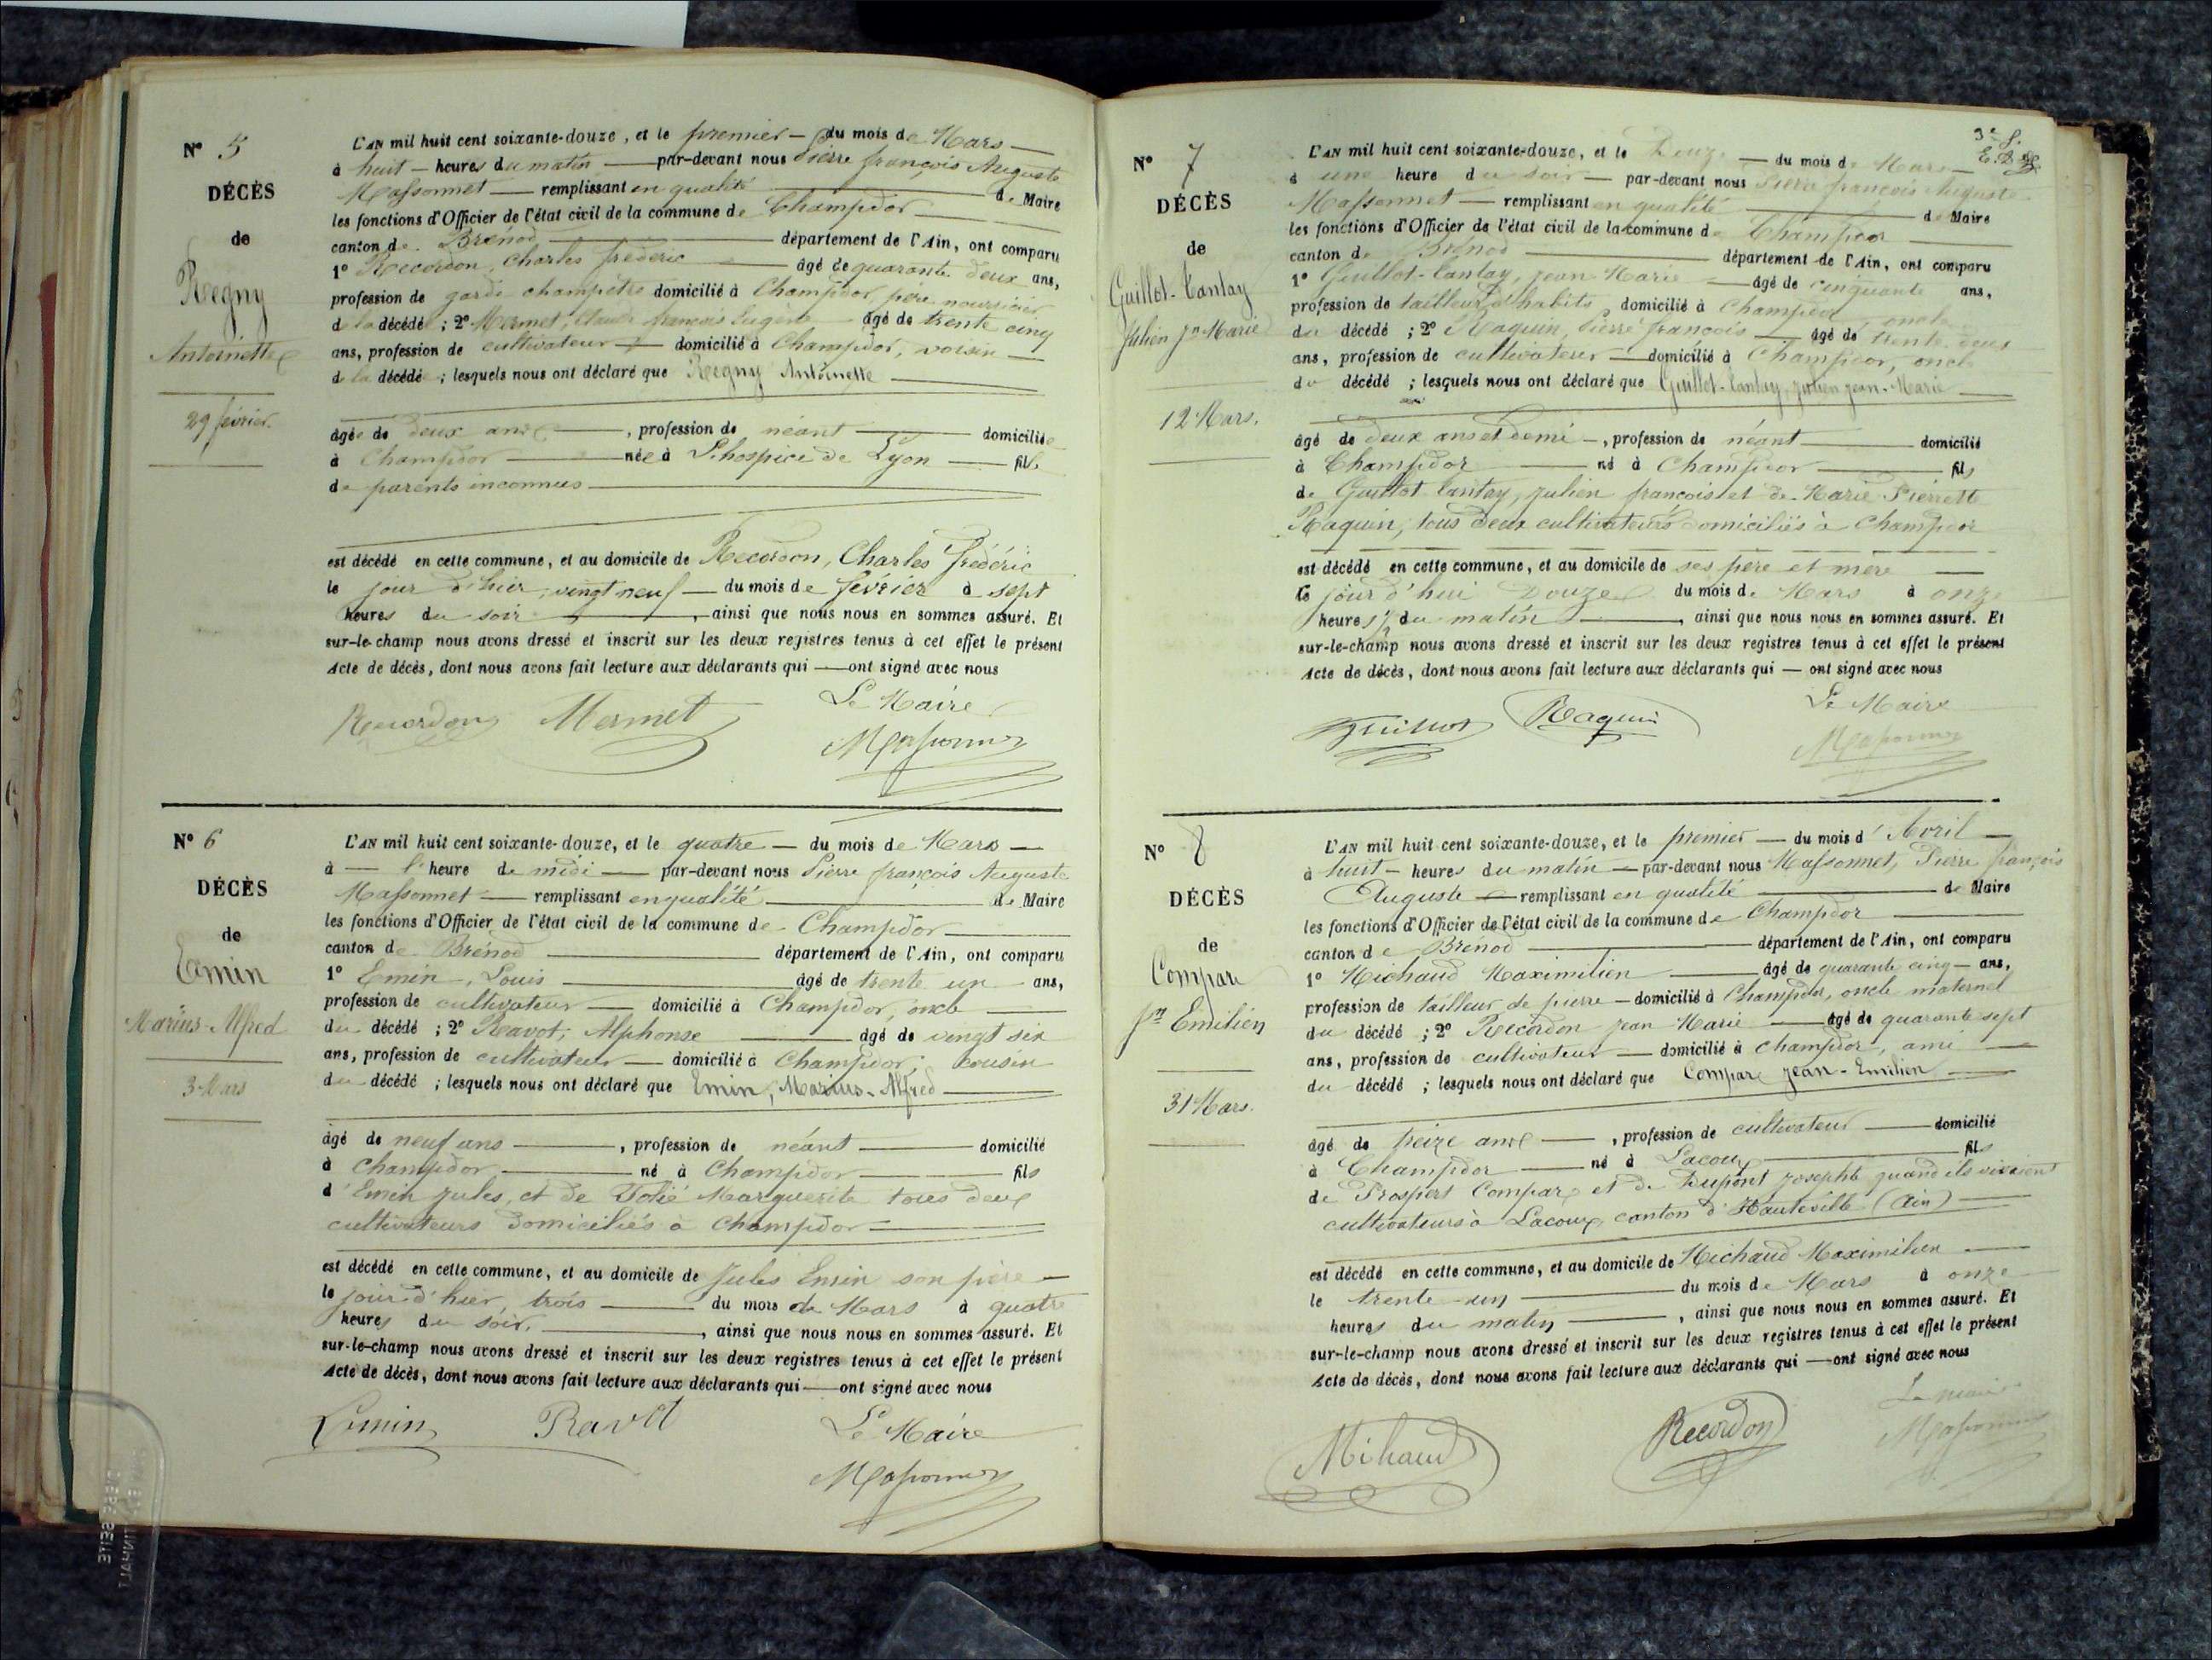 N° 5
DÉCÈS
de
Regny
Antoinette
29 février.
L'AN mil huit cent soixante-douze, et le premier — du mois de Mars —
à huit — heures du matin — par-devant nous Pierre françois Auguste
Massonnet — remplissant en qualité — de Maire
les fonctions d'Officier de l'état civil de la commune de Champdor —
canton de Brénod — département de l'Ain, ont comparu
1° Recordon, Charles frédéric — âgé de quarante deux ans,
profession de garde champêtre domicilié à Champdor, père nourricier
de la décédé ; 2° Mermet, Claude françois Eugène âgé de trente cinq
ans, profession de cultivateur — domicilié à Champdor, voisin —
de la décédé ; lesquels nous ont déclaré que Regny Antoinette —
âgée de deux ans — , profession de néant — domiciliée
à Champdor — née à L'hospice de Lyon — fille
de parents inconnus —
est décédé en cette commune, et au domicile de Recordon, Charles frédéric
le jour d'hier, vingt neuf — du mois de février à sept
heures du soir — , ainsi que nous nous en sommes assuré. Et
sur-le-champ nous avons dressé et inscrit sur les deux registres tenus à cet effet le présent
Acte de décès, dont nous avons fait lecture aux déclarants qui — ont signé avec nous
Le Maire
Recordon Mermet Massonnet
N° 6
DÉCÈS
de
Emin
Marius-Alfred
3 Mars
L'AN mil huit cent soixante-douze, et le quatre — du mois de Mars —
à — l'heure de midi — par-devant nous Pierre françois Auguste
Massonnet — remplissant en qualité — de Maire
les fonctions d'Officier de l'état civil de la commune de Champdor —
canton de Brénod — département de l'Ain, ont comparu
1° Emin, Louis — âgé de trente un — ans,
profession de cultivateur — domicilié à Champdor, oncle —
du décédé ; 2° Ravot, Alphonse — âgé de vingt six
ans, profession de cultivateur — domicilié à Champdor, cousin
du décédé ; lesquels nous ont déclaré que Emin, Marius-Alfred —
âgé de neuf ans — , profession de néant — domicilié
à Champdor — né à Champdor — fils
d'Emin Jules, et de Marguerite tous deux
cultivateurs domiciliés à Champdor —
est décédé en cette commune, et au domicile de Jules Emin son père —
le jour d'hier, trois — du mois de Mars à quatre
heures du soir, — , ainsi que nous nous en sommes assuré. Et
sur-le-champ nous avons dressé et inscrit sur les deux registres tenus à cet effet le présent
Acte de décès, dont nous avons fait lecture aux déclarants qui — ont signé avec nous
Emin Ravot Le Maire
Massonnet
3e f.
N° 7
DÉCÈS
de
Guillot-Lantay
Julien Jn Marie
12 Mars.
L'AN mil huit cent soixante-douze, et le Douze — du mois de Mars —
à une heure du soir — par-devant nous Pierre françois Auguste
Massonnet — remplissant en qualité — de Maire
les fonctions d'Officier de l'état civil de la commune de Champdor —
canton de Brénod — département de l'Ain, ont comparu
1° Guillot-Lantay, Jean-Marie — âgé de cinquante ans,
profession de tailleur d'habits domicilié à Champdor oncle
du décédé ; 2° Raquin, Pierre françois — âgé de trente deux
ans, profession de cultivateur — domicilié à Champdor, oncle
du décédé ; lesquels nous ont déclaré que Guillot-Lantay, Julien Jean-Marie —
âgé de deux ans et demi —, profession de néant — domicilié
à Champdor — né à Champdor — fils
de Guillot-Lantay, Julien françois et de Marie Pierrette
Raquin, tous deux cultivateurs domiciliés à Champdor
est décédé en cette commune, et au domicile de ses père et mère —
le jour d'hui Douze du mois de Mars à onze
heures ½ du matin — , ainsi que nous nous en sommes assuré. Et
sur-le-champ nous avons dressé et inscrit sur les deux registres tenus à cet effet le présent
Acte de décès, dont nous avons fait lecture aux déclarants qui — ont signé avec nous
Le Maire
Guillot Raquin Massonnet
N° 8
DÉCÈS
de
Compare
Jn Emilien
31 Mars.
L'AN mil huit cent soixante-douze, et le premier — du mois d'Avril —
à huit — heures du matin — par-devant nous Massonnet, Pierre françois
Auguste — remplissant en qualité — de Maire
les fonctions d'Officier de l'état civil de la commune de Champdor —
canton de Brénod — département de l'Ain, ont comparu
1° Michaud Maximilien — âgé de quarante cinq — ans,
profession de tailleur de pierre — domicilié à Champdor, oncle maternel
du décédé ; 2° Recordon Jean Marie — âgé de quarante sept
ans, profession de cultivateur — domicilié à Champdor, ami —
du décédé ; lesquels nous ont déclaré que Compare Jean-Emilien —
âgé de treize ans — , profession de cultivateur — domicilié
à Champdor — né à Lacoux — fils
de Prospert Compare et de Dupont Josephte quand ils vivaient
cultivateurs à Lacoux, canton d'Hauteville (Ain) —
est décédé en cette commune, et au domicile de Michaud Maximilien —
le trente-un — du mois de Mars à onze
heures du matin — , ainsi que nous nous en sommes assuré. Et
sur-le-champ nous avons dressé et inscrit sur les deux registres tenus à cet effet le présent
Acte de décès, dont nous avons fait lecture aux déclarants qui — ont signé avec nous
Le maire
Mihaud Recordon Massonnet